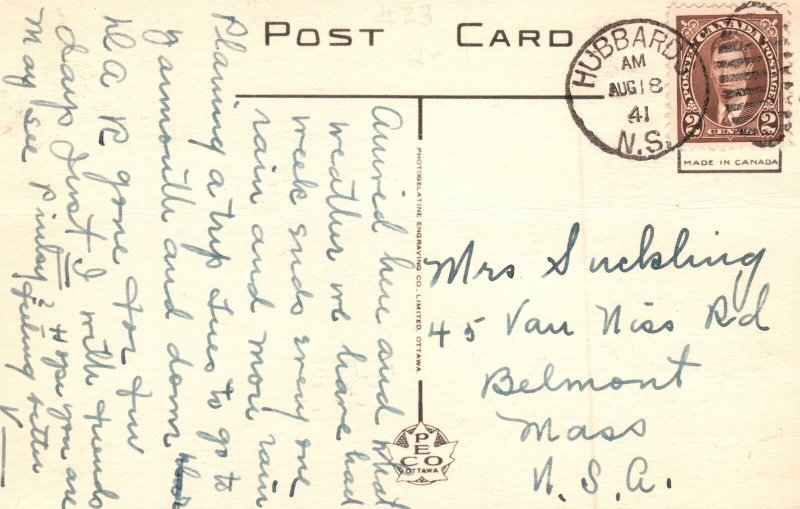 POST CARD
#23
2-
HUBBARDS
AM
AUG 18
41
N.S.
POSTES CANADA POSTAGE
2 CENTS 2
MADE IN CANADA
Arrived here and what
weather we have had
week ends every one
rain and more rain
Planing a trip Tues to go to
Yarmouth and down
D A R gone for few
days Just I with friends
May see Pinky? Hope you are
feeling better
V
PHOTOGELATINE ENGRAVING CO., LIMITED, OTTAWA.
PECO
OTTAWA
Mrs Suckling
45 Van Niss Rd
Belmont
Mass
U.S.A.